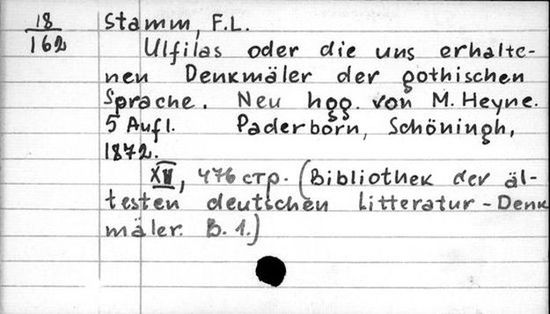 18
162
Stamm, F.L.
Ulfilas oder die uns erhalte-
nen Denkmäler der gothischen
Sprache. Neu hgg. von M. Heyne.
5 Aufl. Paderborn, Schöningh,
1872.
XV, 476 стр. (Bibliothek der äl-
testen deutschen Litteratur-Denk
mäler. B. 1.)